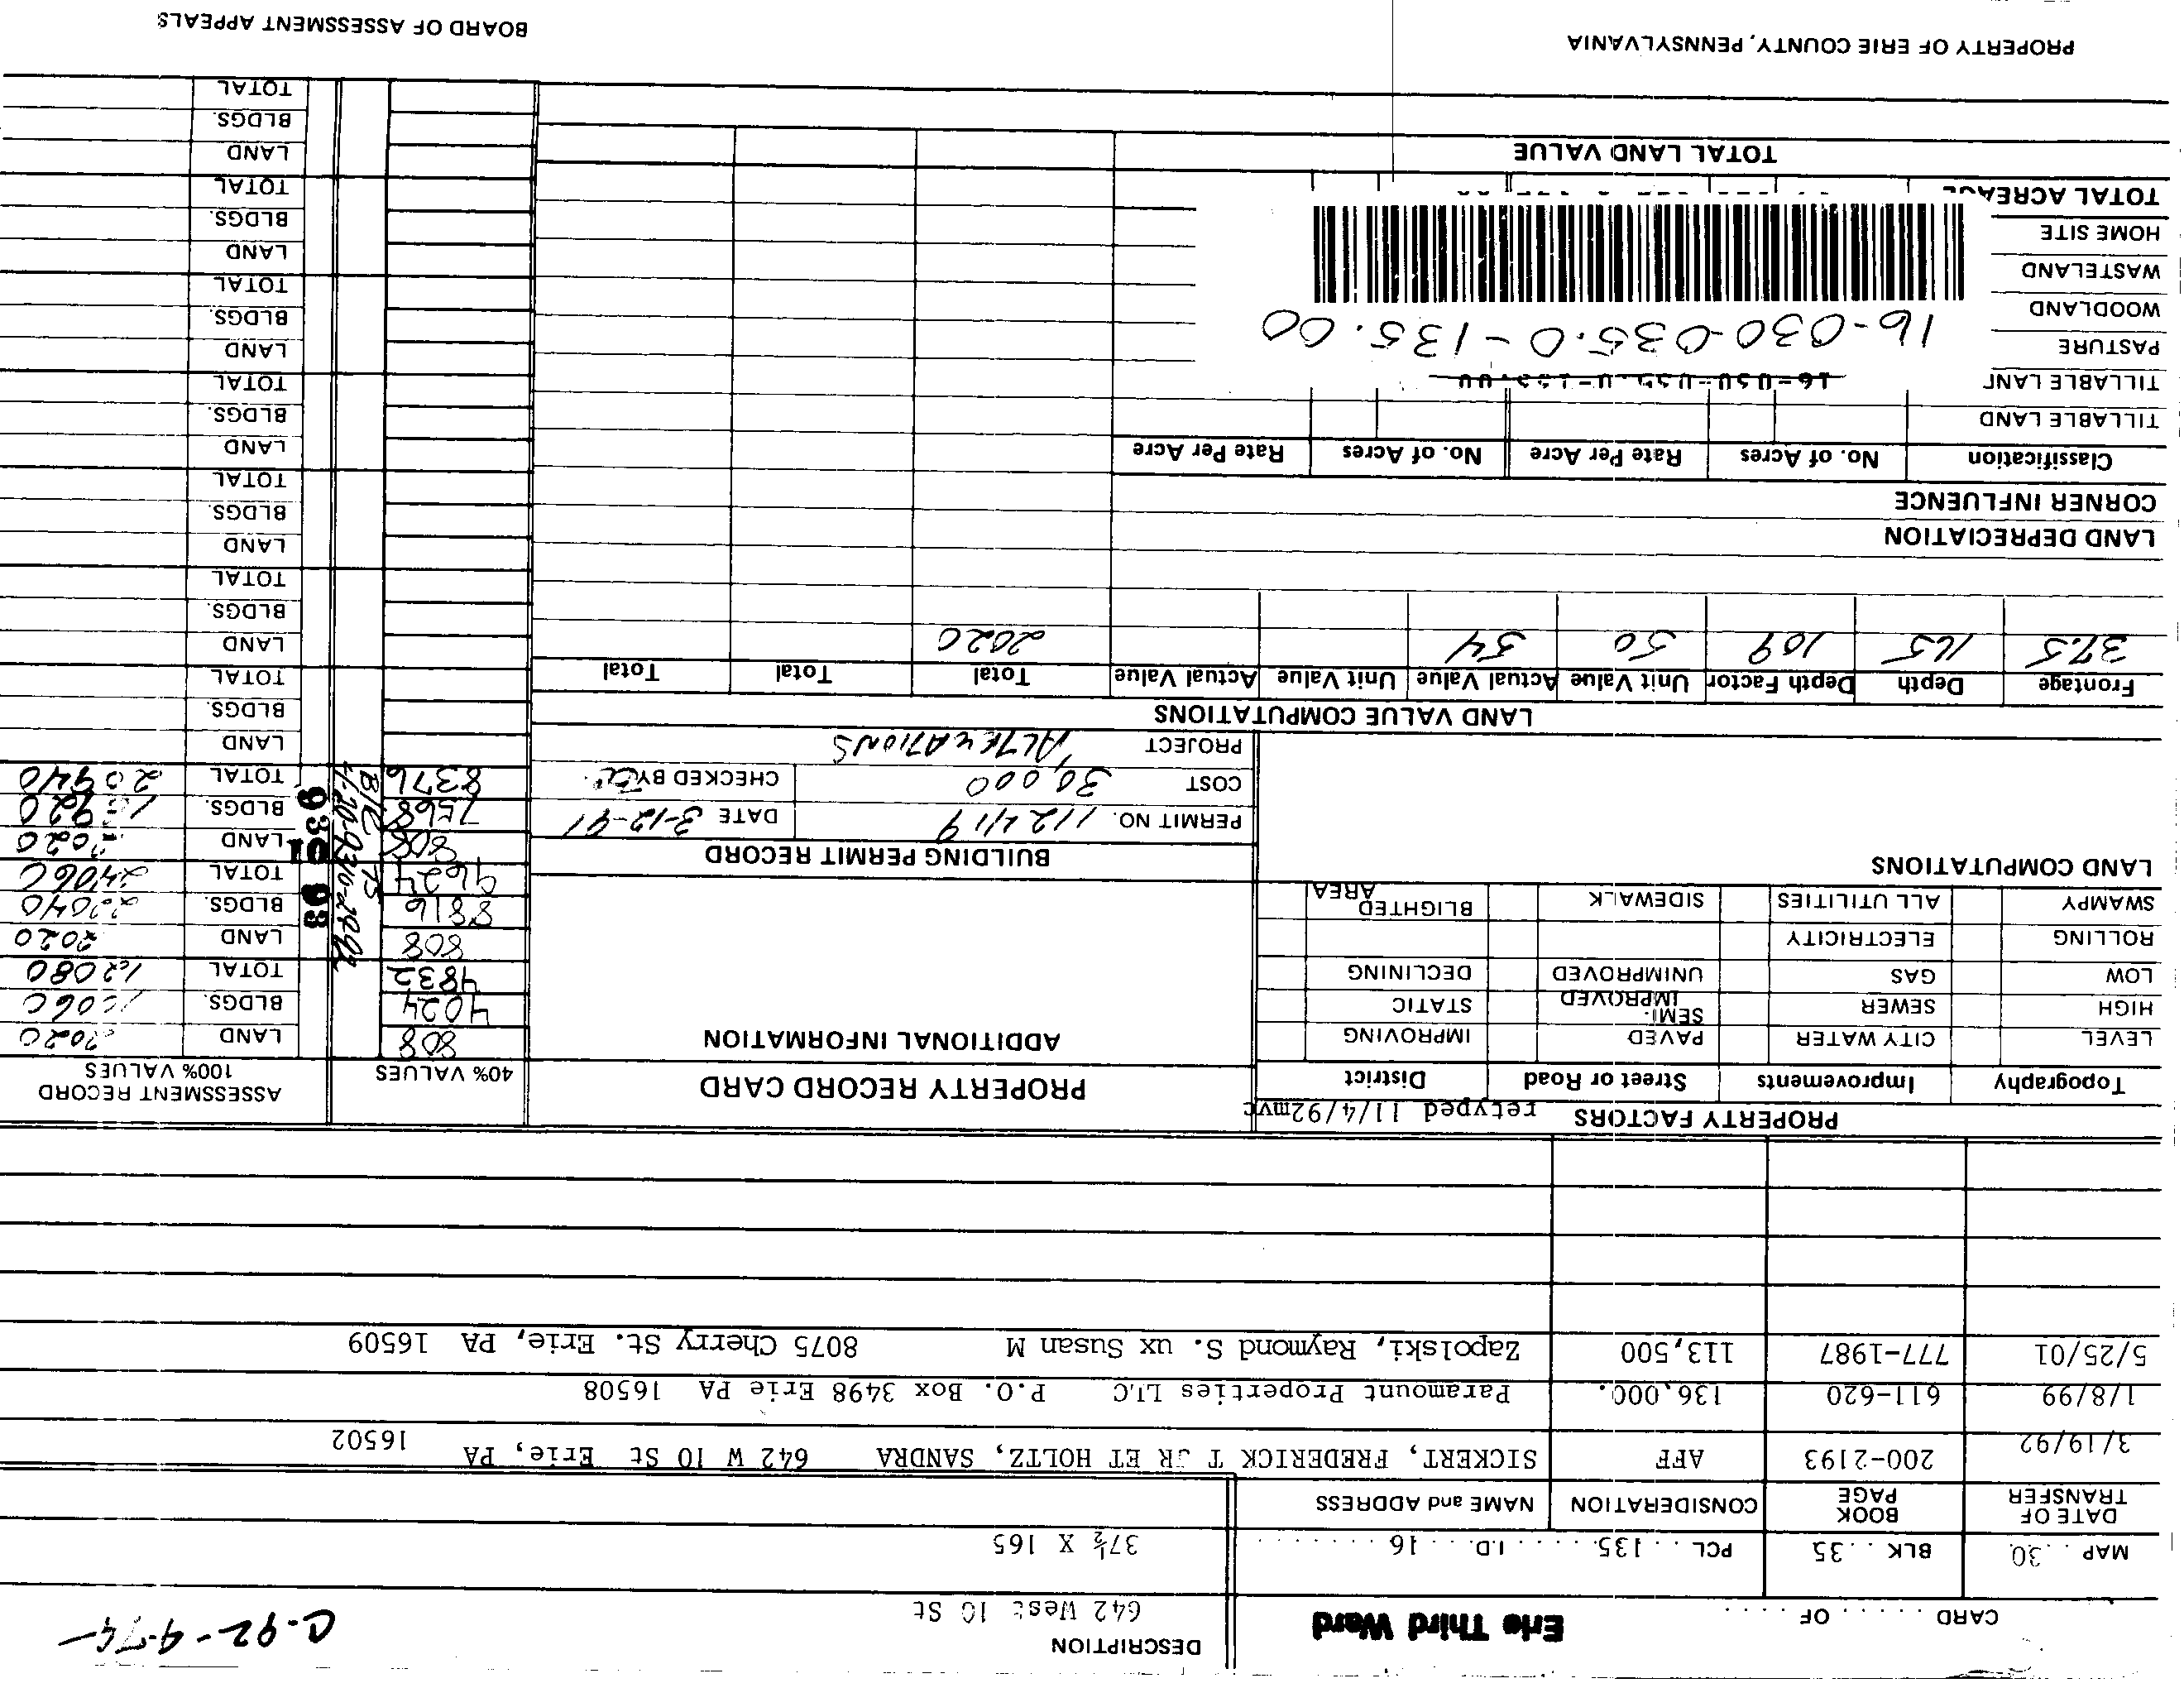 CARD . . . . . . OF . . . . .
Erie Third Ward
DESCRIPTION
642 West 10 St
C-92-9-74
MAP . . 30. BLK . . 35 PCL . . . 135. . . . . . I.D. . . . 16 . . . . . . . .
37½ X 165
DATE OF TRANSFER BOOK PAGE CONSIDERATION NAME and ADDRESS
3/19/92 200-2193 AFF SICKERT, FREDERICK T JR ET HOLTZ, SANDRA 642 W 10 St Erie, PA 16502
1/8/99 611-620 136,000. Paramount Properties LLC P.O. Box 3498 Erie PA 16508
5/25/01 777-1987 113,500 Zapolski, Raymond S. ux Susan M 8075 Cherry St. Erie, PA 16509
PROPERTY FACTORS retyped 11/4/92mvc
Topography Improvements Street or Road District
LEVEL CITY WATER PAVED IMPROVING
HIGH SEWER SEMI-IMPROVED STATIC
LOW GAS UNIMPROVED DECLINING
ROLLING ELECTRICITY
SWAMPY ALL UTILITIES SIDEWALK BLIGHTED AREA
LAND COMPUTATIONS
PROPERTY RECORD CARD
ADDITIONAL INFORMATION
BUILDING PERMIT RECORD
PERMIT NO. 112419 DATE 3-12-91
COST 30,000 CHECKED BY
PROJECT ALTERATIONS
40% VALUES
ASSESSMENT RECORD
100% VALUES
808 LAND 2020
4024 BLDGS. 10060
4832 TOTAL 12080
808 LAND 2020
8816 BLDGS. 22040
9624 TOTAL 24060
808 LAND 2020
7568 BLDGS. 18920
8376 TOTAL 20940
93 01 03
LAND
BLDGS.
TOTAL
LAND
BLDGS.
TOTAL
LAND
BLDGS.
TOTAL
LAND
BLDGS.
TOTAL
LAND
BLDGS.
TOTAL
LAND
BLDGS.
TOTAL
LAND
BLDGS.
TOTAL
LAND VALUE COMPUTATIONS
Frontage Depth Depth Factor Unit Value Actual Value Unit Value Actual Value Total Total Total
37.5 165 109 50 54 2020
LAND DEPRECIATION
CORNER INFLUENCE
Classification No. of Acres Rate Per Acre No. of Acres Rate Per Acre
TILLABLE LAND
TILLABLE LAND
16-030-035.0-135.00
PASTURE
16-030-035.0-135.00
WOODLAND
WASTELAND
HOME SITE
TOTAL ACREAGE
TOTAL LAND VALUE
PROPERTY OF ERIE COUNTY, PENNSYLVANIA
BOARD OF ASSESSMENT APPEALS